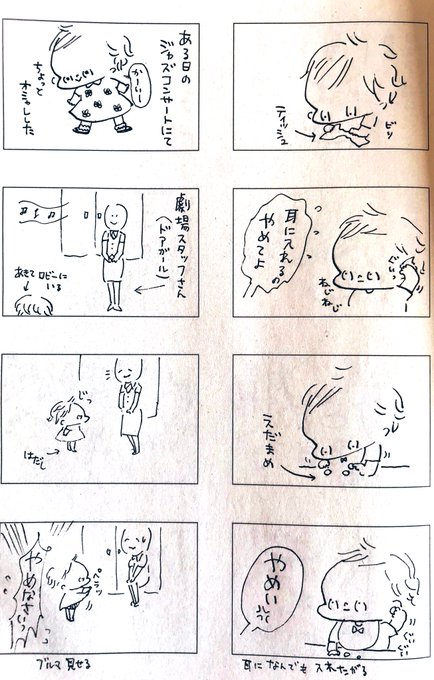 ティッシュ
ビリ
耳に入れるの
やめてよ
ねじねじ
えだまめ
やめい
ぐいぐい
耳になんでも入れたがる
ある日の
ジャズコンサートにて
かーいー
ちょっと
オシャレした
劇場スタッフさん
(ドアガール)
あきてロビーに
いる
じっ
はだし
ペラッ
やめなさいっ
ブルマ見せる